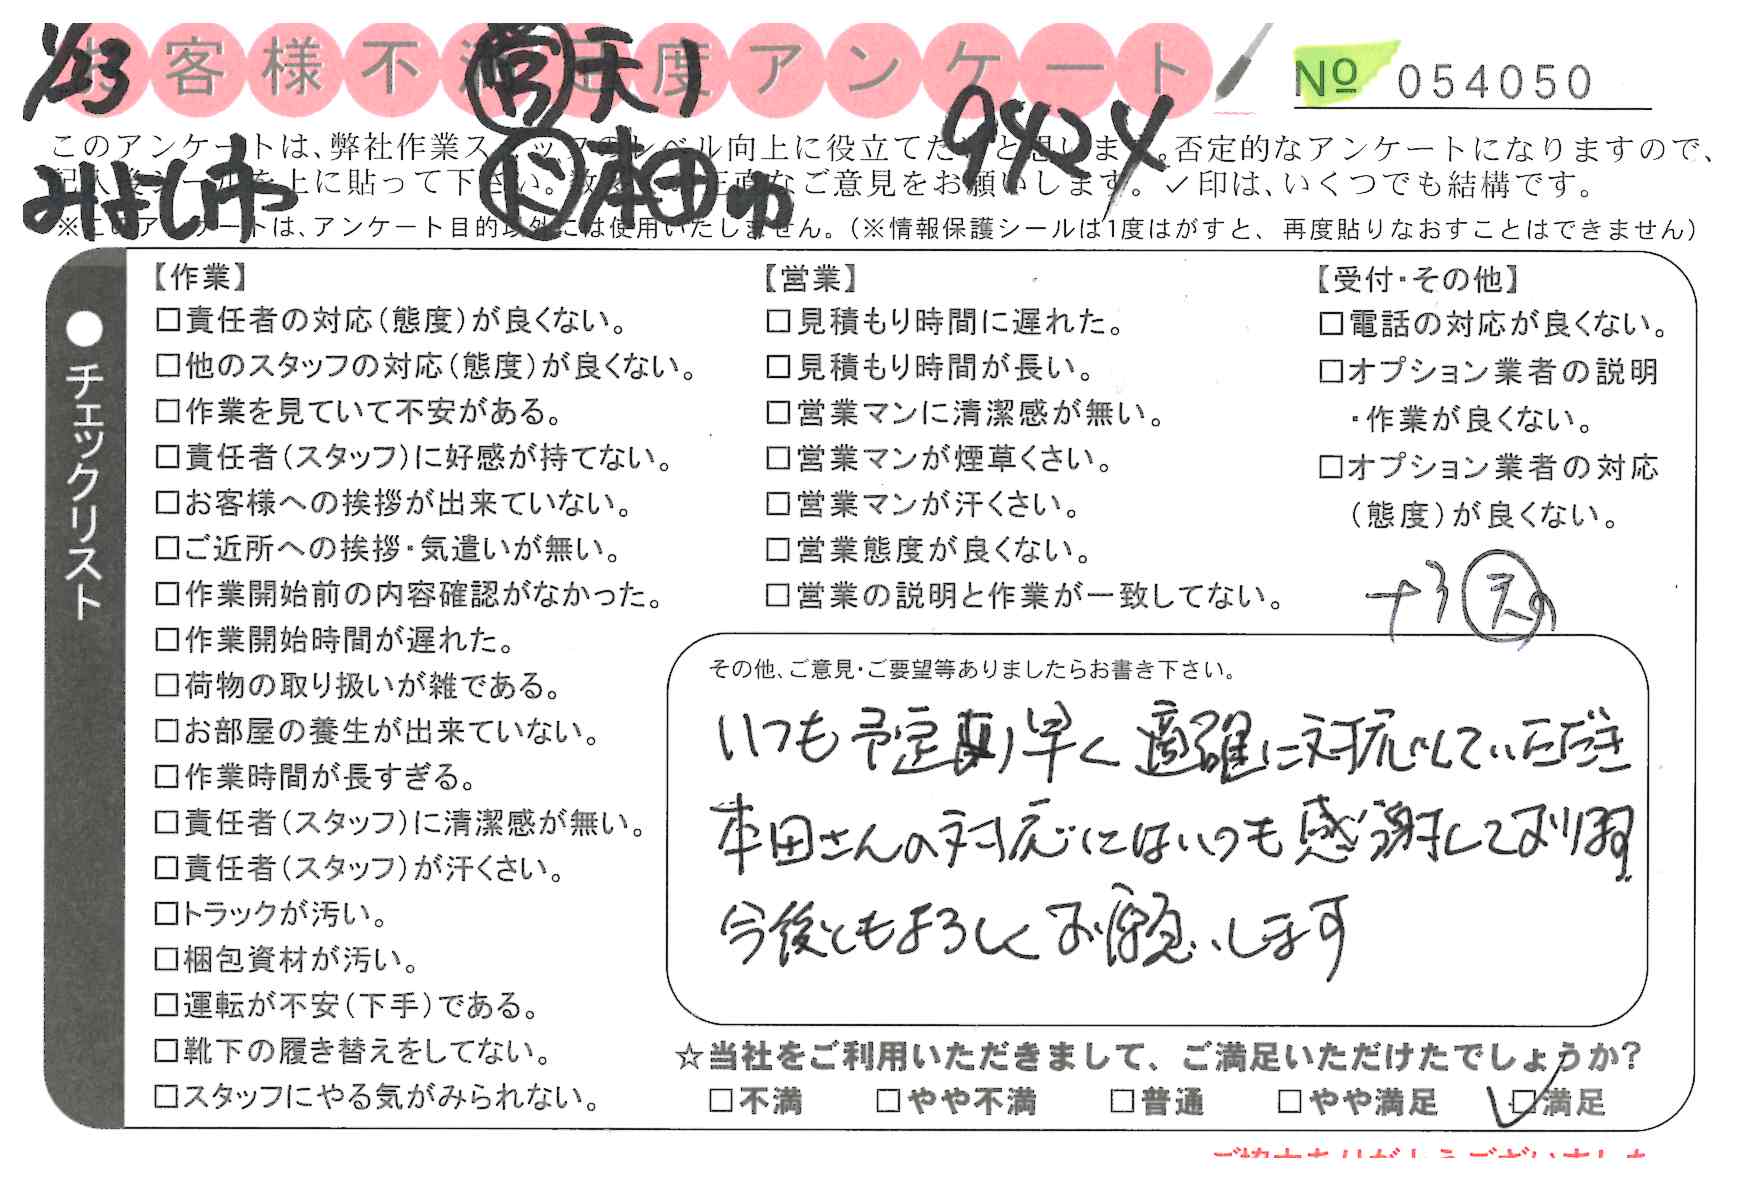 お客様不満足度アンケート
1/23
営天1
№ 054050
9424
このアンケートは、弊社作業スタッフのレベル向上に役立てたいと思います。否定的なアンケートになりますので、
記入後シールを上に貼って下さい。数多くの正直なご意見をお願いします。✓印は、いくつでも結構です。
みよし市
本田
※このアンケートは、アンケート目的以外には使用いたしません。（※情報保護シールは1度はがすと、再度貼りなおすことはできません）
●チェックリスト
【作業】
□責任者の対応（態度）が良くない。
□他のスタッフの対応（態度）が良くない。
□作業を見ていて不安がある。
□責任者（スタッフ）に好感が持てない。
□お客様への挨拶が出来ていない。
□ご近所への挨拶・気遣いが無い。
□作業開始前の内容確認がなかった。
□作業開始時間が遅れた。
□荷物の取り扱いが雑である。
□お部屋の養生が出来ていない。
□作業時間が長すぎる。
□責任者（スタッフ）に清潔感が無い。
□責任者（スタッフ）が汗くさい。
□トラックが汚い。
□梱包資材が汚い。
□運転が不安（下手）である。
□靴下の履き替えをしてない。
□スタッフにやる気がみられない。
【営業】
□見積もり時間に遅れた。
□見積もり時間が長い。
□営業マンに清潔感が無い。
□営業マンが煙草くさい。
□営業マンが汗くさい。
□営業態度が良くない。
□営業の説明と作業が一致してない。
【受付・その他】
□電話の対応が良くない。
□オプション業者の説明
・作業が良くない。
□オプション業者の対応
（態度）が良くない。
+3 天
その他、ご意見・ご要望等ありましたらお書き下さい。
いつも予定より早く適確に対応していただき
本田さんの対応にはいつも感謝しております
今後ともよろしくお願いします
☆当社をご利用いただきまして、ご満足いただけたでしょうか?
□不満 □やや不満 □普通 □やや満足 ✓□満足
ご協力ありがとうございました